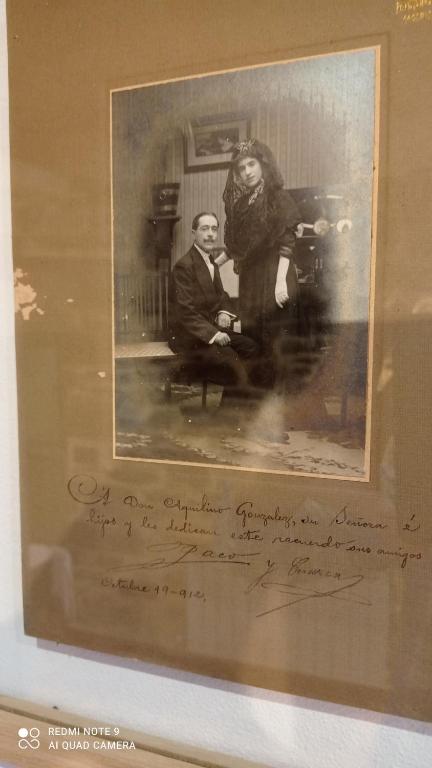 A Don Aquilino Gonzalez, su Señora é
hijos y les dedican este recuerdo sus amigos
Paco y
Octubre 19-912.
REDMI NOTE 9
AI QUAD CAMERA